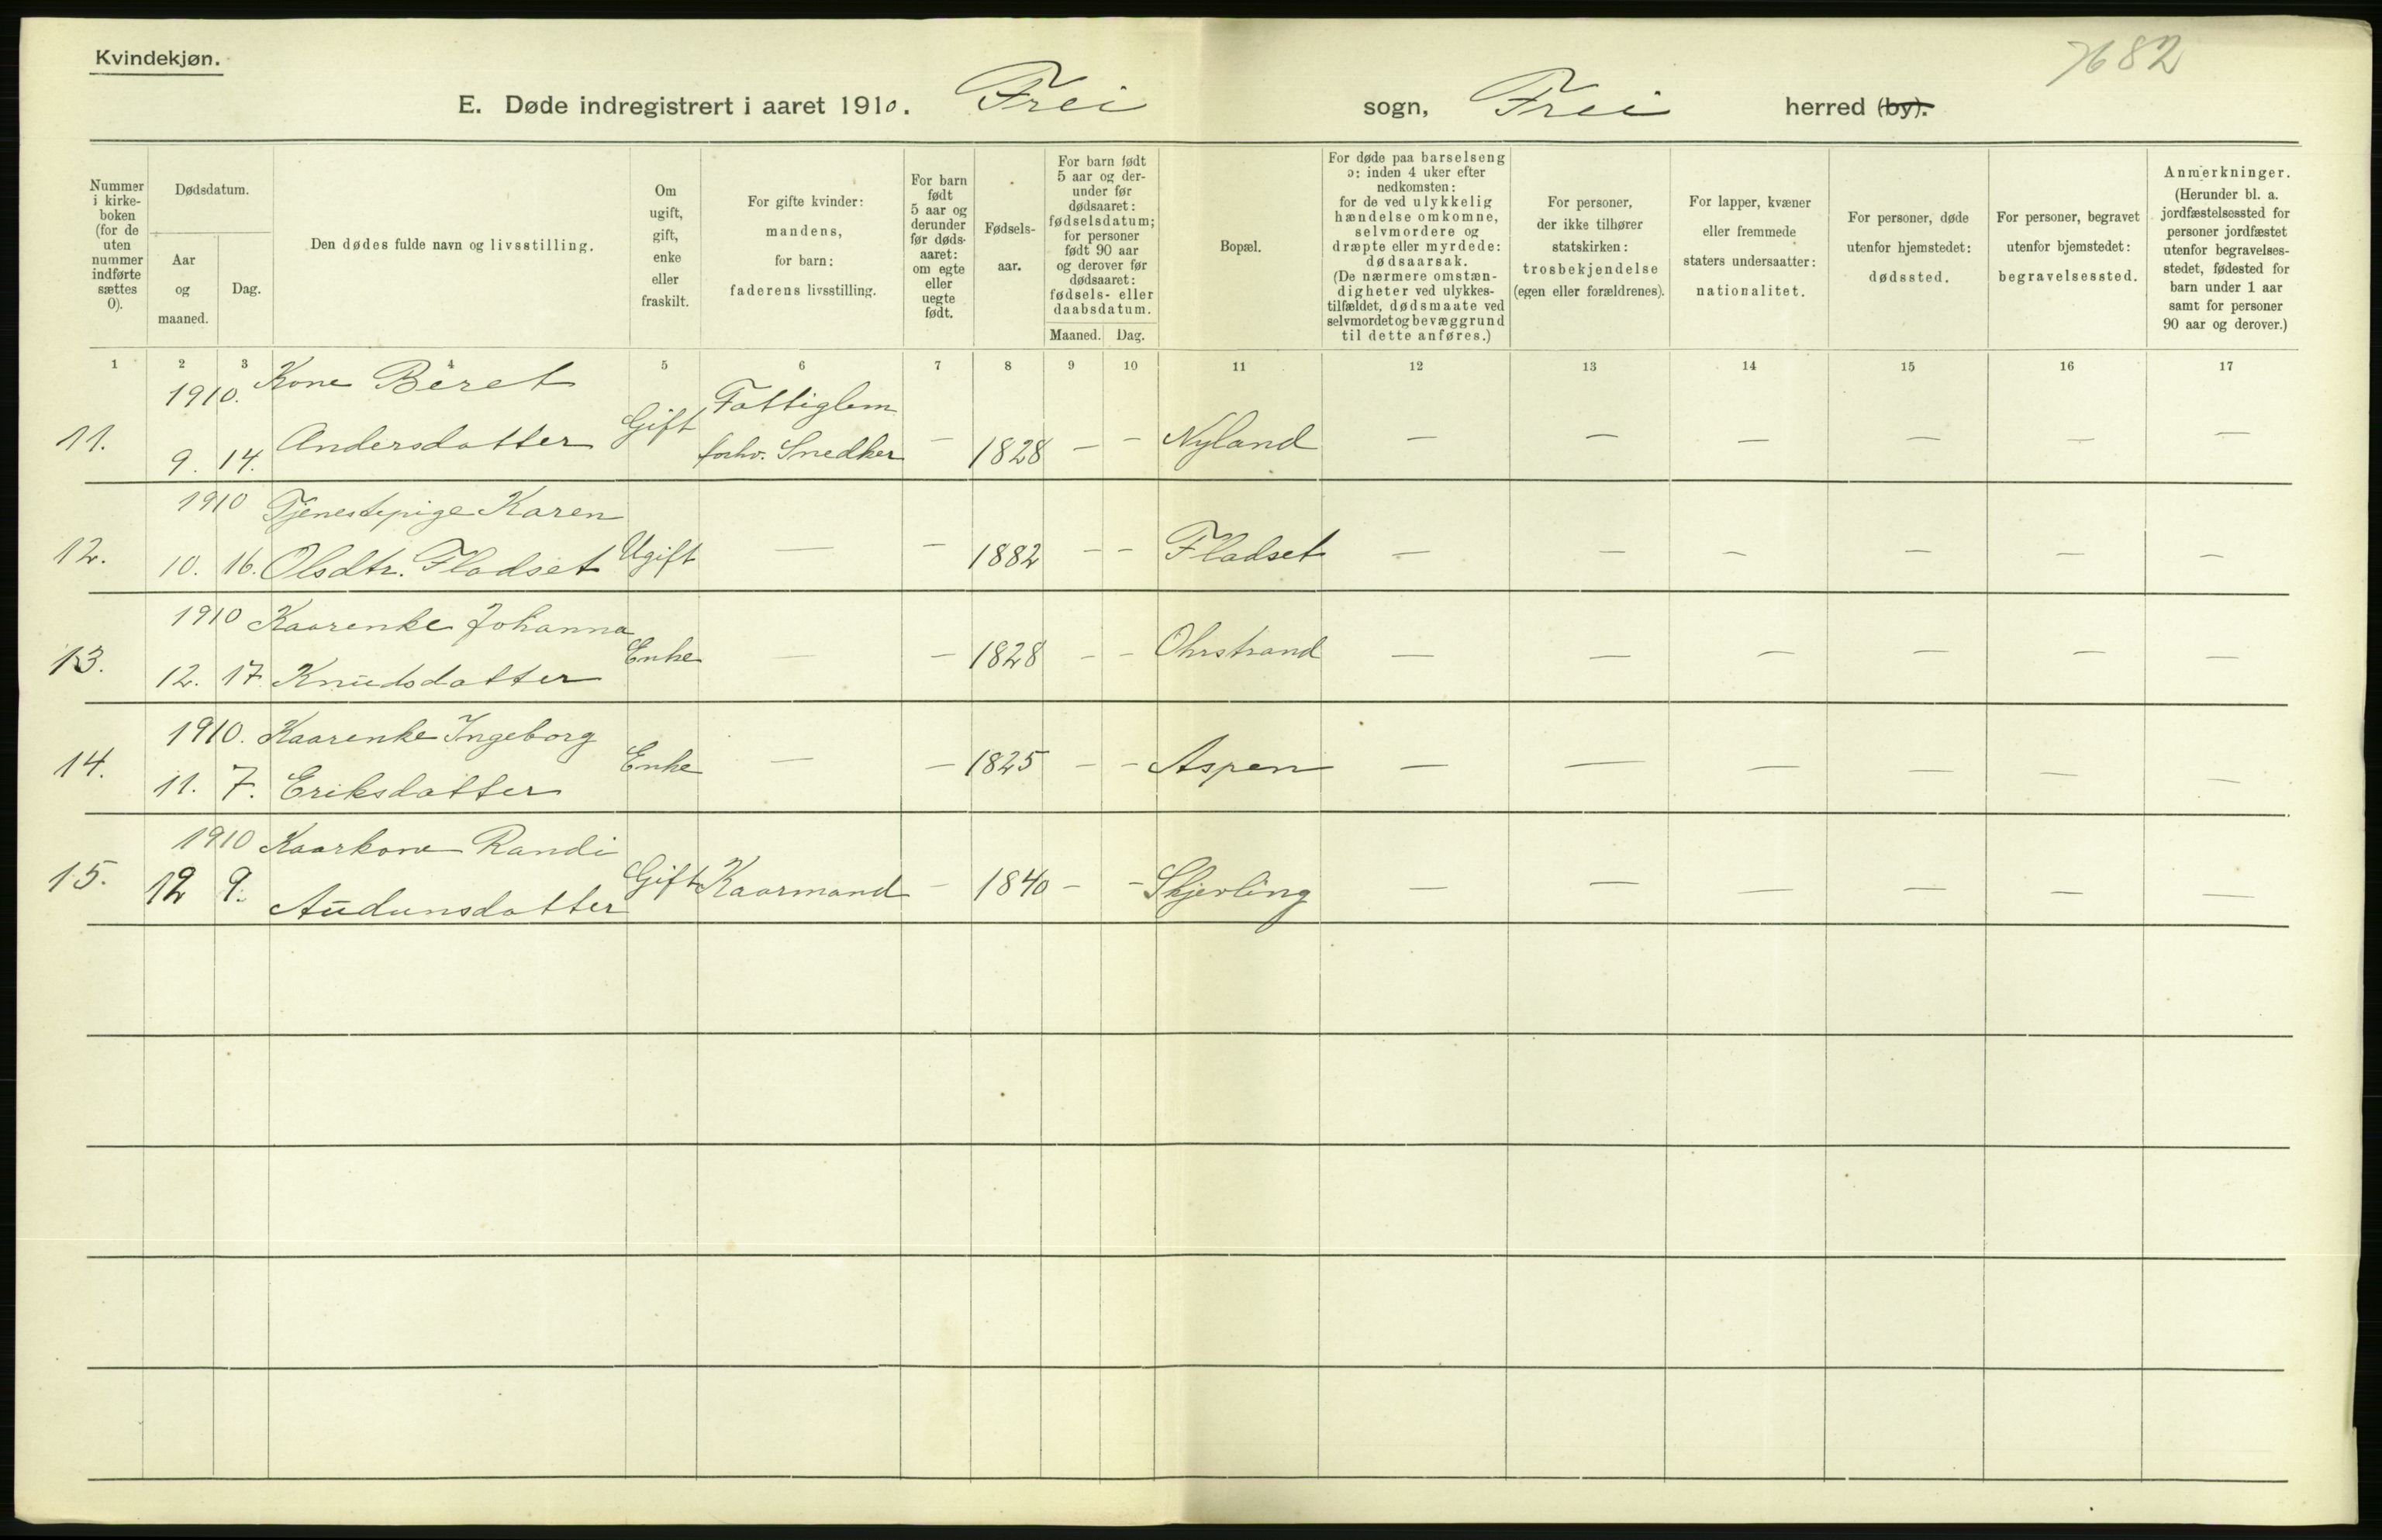 Kvindekjøn.
7682
E. Døde indregistrert i aaret 1910. Frei sogn, Frei herred (by).
Nummer i kirke-boken (for de uten nummer indførte sættes 0).
Dødsdatum.
Aar og maaned.
Dag.
Den dødes fulde navn og livsstilling.
Om ugift, gift, enke eller fraskilt.
For gifte kvinder: mandens, for barn: faderens livsstilling.
For barn født 5 aar og derunder før døds-aaret: om egte eller uegte født.
Fødsels-aar.
For barn født 5 aar og der-under før dødsaaret: fødselsdatum; for personer født 90 aar og derover før dødsaaret: fødsels- eller daabsdatum.
Maaned. Dag.
Bopæl.
For døde paa barselseng ɔ: inden 4 uker efter nedkomsten: for de ved ulykkelig hændelse omkomne, selvmordere og dræpte eller myrdede: dødsaarsak. (De nærmere omstæn-digheter ved ulykkes-tilfældet, dødsmaate ved selvmordet og bevæggrund til dette anføres.)
For personer, der ikke tilhører statskirken: trosbekjendelse (egen eller forældrenes).
For lapper, kvæner eller fremmede staters undersaatter: nationalitet.
For personer, døde utenfor hjemstedet: dødssted.
For personer, begravet utenfor hjemstedet: begravelsessted.
Anmerkninger. (Herunder bl. a. jordfæstelsessted for personer jordfæstet utenfor begravelses-stedet, fødested for barn under 1 aar samt for personer 90 aar og derover.)
1 2 3 4 5 6 7 8 9 10 11 12 13 14 15 16 17
1910. Kone Beret Fattiglem
11. 9. 14. Andersdatter Gift forhv. Snedker — 1828 — — Nyland — — — — — —
1910 Tjenestepige Karen
12. 10. 16. Olsdtr. Fladset Ugift — — 1882 — — Fladset — — — — — —
1910 Kaarenke Johanna
13. 12. 17. Knudsdatter Enke — — 1828 — — Ohrstrand — — — — — —
1910. Kaarenke Ingeborg
14. 11. 7. Eriksdatter Enke — — 1825 — — Aspen — — — — — —
1910 Kaarkone Randi
15. 12 9. Audunsdatter Gift Kaarmand — 1840 — — Skjerling — — — — — —